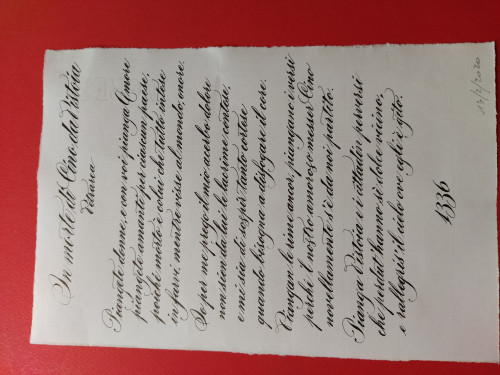 In morte di Cino da Pistoia
Petrarca
Piangete, donne, e con voi pianga Amore
piangete, amanti, per ciascun paese,
poiché morto è colui che tutto intese
in farvi, mentre visse al mondo, onore.
Io per me prego il mio acerbo dolore
non sian da lui le lacrime contese,
e mi sia di sospir tanto cortese
quanto bisogna a disfogare il core.
Piangan le rime ancor, piangano i versi
perché il nostro amoroso messer Cino
novellamente s'è da noi partito.
Pianga Pistoia e i cittadin perversi
che perdut'hanno sì dolce vicino,
e rallegrisi il cielo ov'egli è gito.
1336